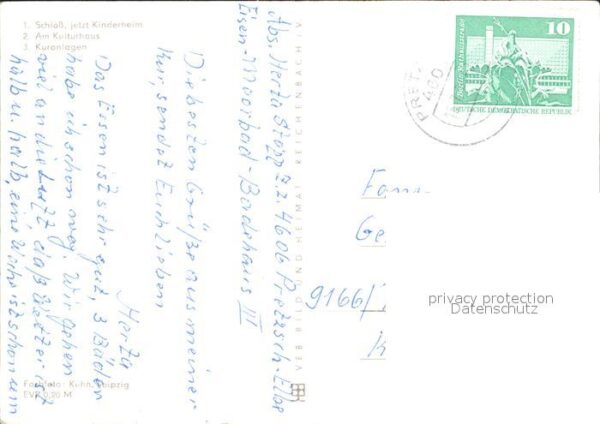 1. Schloß, jetzt Kinderheim
2. Am Kulturhaus
3. Kuranlagen
Abs. Herta z.Z. 4606 Pretzsch-Elbe
Eisen-Moorbad-Badehaus III
Die besten Grüße aus meiner
Kur, sendet Euch lieben
Herta
Das Essen ist sehr gut, 3 Bäder
habe ich schon weg. Wir gehen
viel an die Luft, das Wetter ist
halb u. halb, eine Woche ist schon um
VEB BILD UND HEIMAT REICHENBACH V
Fotofoto: Kuhn, Leipzig
EVP 0,20 M
10
DEUTSCHE DEMOKRATISCHE REPUBLIK
PRETZ
460
Fam.
Ge
9166/
K
privacy protection
Datenschutz